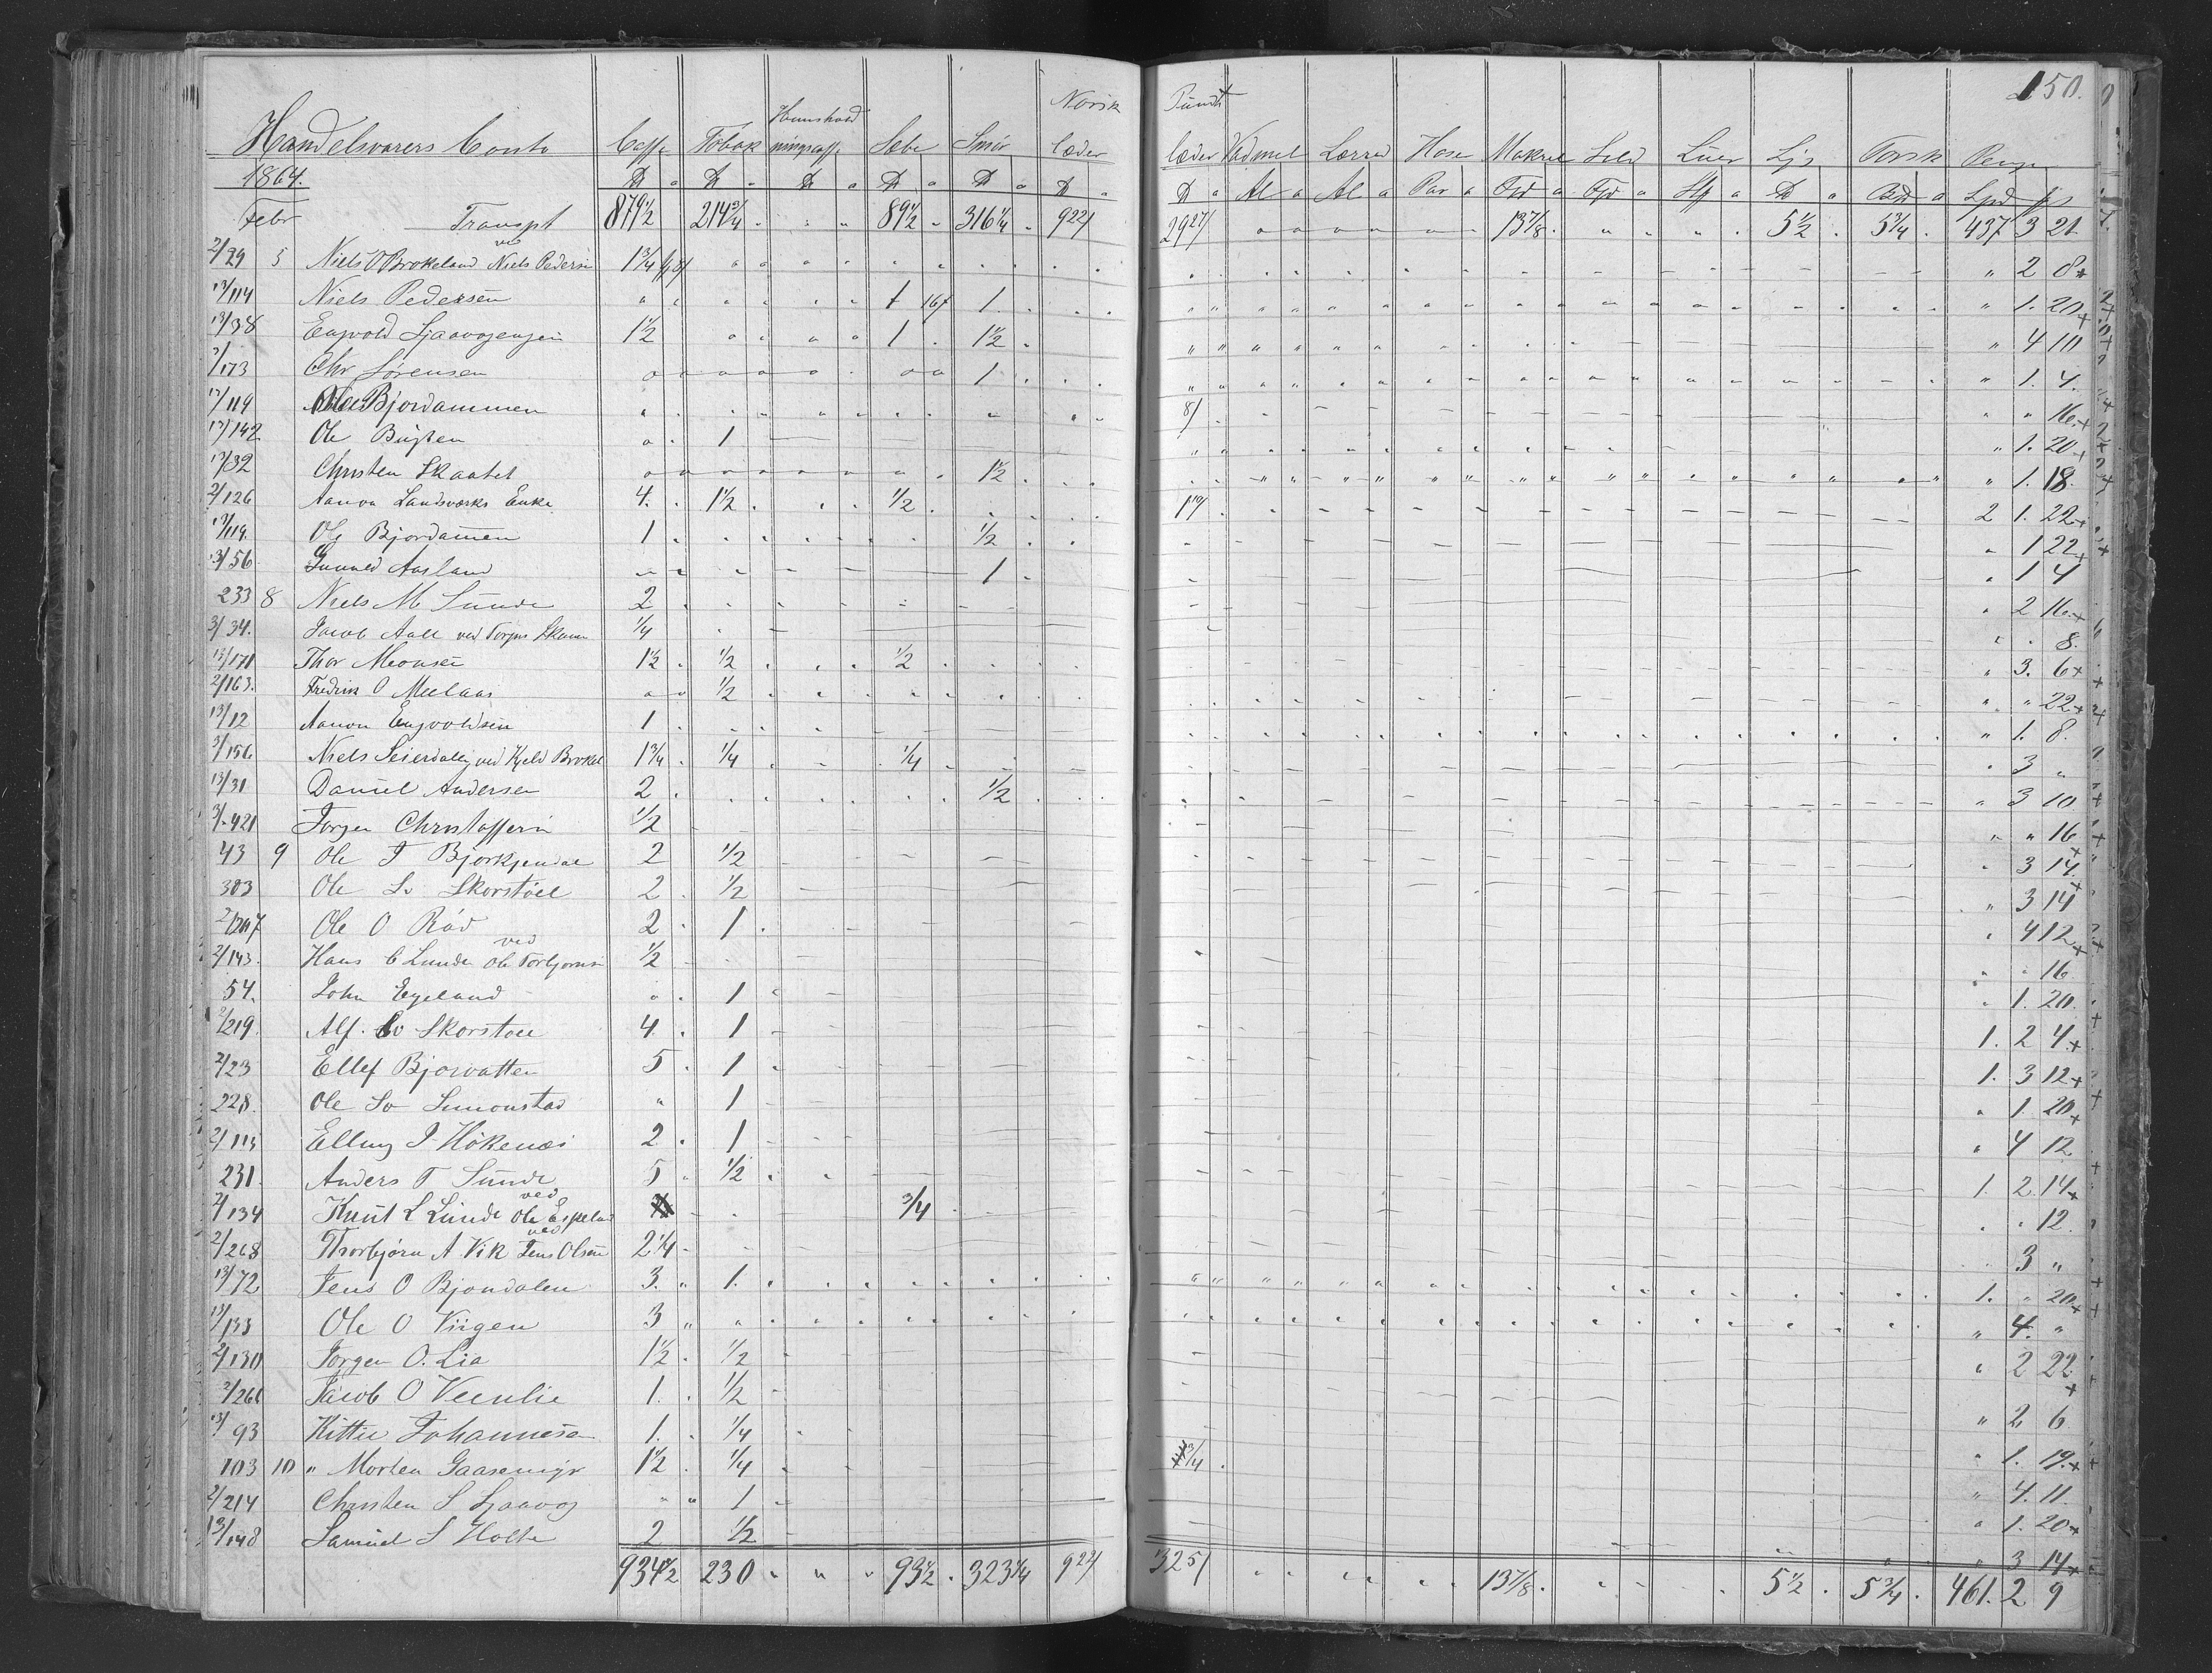 150.
Handelsvarers Conto Caffe Tobak Huusholdningscaffe Sæbe Smør Norsk læder Pund læder Vadmel Lærred Hose Makrel Sild Luer Lys Torsk Penge
1864. ℔ ℔ ℔ ℔ ℔ ℔ ℔ Al Al Par Fjd Fjd ℔ Spd
Febr Transpt 879 1/2 214 3/4 " " 89 1/2 " 316 1/4 " 922/ 2927/ 13 7/8 5 1/2 5 3/4 437 3 21
2/29 5 Niels O Brokeland ved Niels Pedersen 1 3/4 " 2 8
13/114 Niels Pedersen 1 16/ 1 " 1. 20
13/38 Engvold 1 1/2 1 1 1/2 " 4 10
/173 Chr Sørensen 1 " 1. 4.
13/119 Ole Bjordammen 8/ " " 16
13/142 Ole 1 " 1. 20
13/32 Christen Skaatet 1 1/2 " 1. 18.
2/126 Aanon Landsværks Enke 4. 1 1/2 1/2 2 1. 22
13/119. Ole Bjordammen 1 1/2 " 1 22
3/56 Gunuld Aasland 1 " 1 4
233 8 Niels M Sunde 2 " 2 16
3/34. Jacob Aall ved Torjus 1/4 " " 8.
13/171 Thor Monsen 1 1/2 1/2 1/2 " 3. 6
2/163. Fredrik O Meelaas 1/2 " " 22
13/12 Aanon Engvoldsen 1 " 1. 8.
3/156 Niels Seierdalen ved Kjeld Brokel 1 3/4 1/4 1/4 " 3 "
13/31 Daniel Andersen 2 1/2 " 3 10
3/421 Jørgen Christoffersen 1/2 " " 16
43 9 Ole T Bjorkjendal 2 1/2 " 3 14
303 Ole Sv Skorstøl 2 1/2 " 3 14
Ole O Rød 2 1 " 4 12
2/143. Hans C Lunde ved Ole Torbjørnsen 1/2 " " 16
54. John Egeland 1 " 1. 20
2/219. Alf. Sv Skorstøl 4. 1 1. 2 4
2/23 Ellef Bjorvatten 5 1 1. 3 12
228. Ole Sv Simonstad " 1 " 1. 20
2/113 Elling J Høkenæs 2 1 " 4 12
231. Anders T Sunde 5 1/2 1. 2 14
2/134 Knut L Lunde ved Ole Espeland 3/4 " " 12
2/268 Thorbjørn A Vik ved Jens Olsen 2 1/4 3 "
13/72 Jens O Bjondalen 3. 1. 1. " 20
13/133 Ole O Viigen 3 " 4. "
2/130 Jørgen O. Lia 1 1/2 1/2 " 2 22
2/266 Jacob O Veenlie 1. 1/2 " 2 6
13/93 Kittil Johannesen 1. 1/4 " 1. 19
103 10 " Morten Gaasemyr 1 1/2 1/4 3/4 " 4. 11.
2/214 Christen S " " 1 " 1. 20
13/148 Samuel S Holte 2 1/2 " 3 14
934 1/2 230 " " " 93 1/2 " 323 1/4 922/ 325/ 13 7/8 5 1/2 5 3/4 461. 2 9